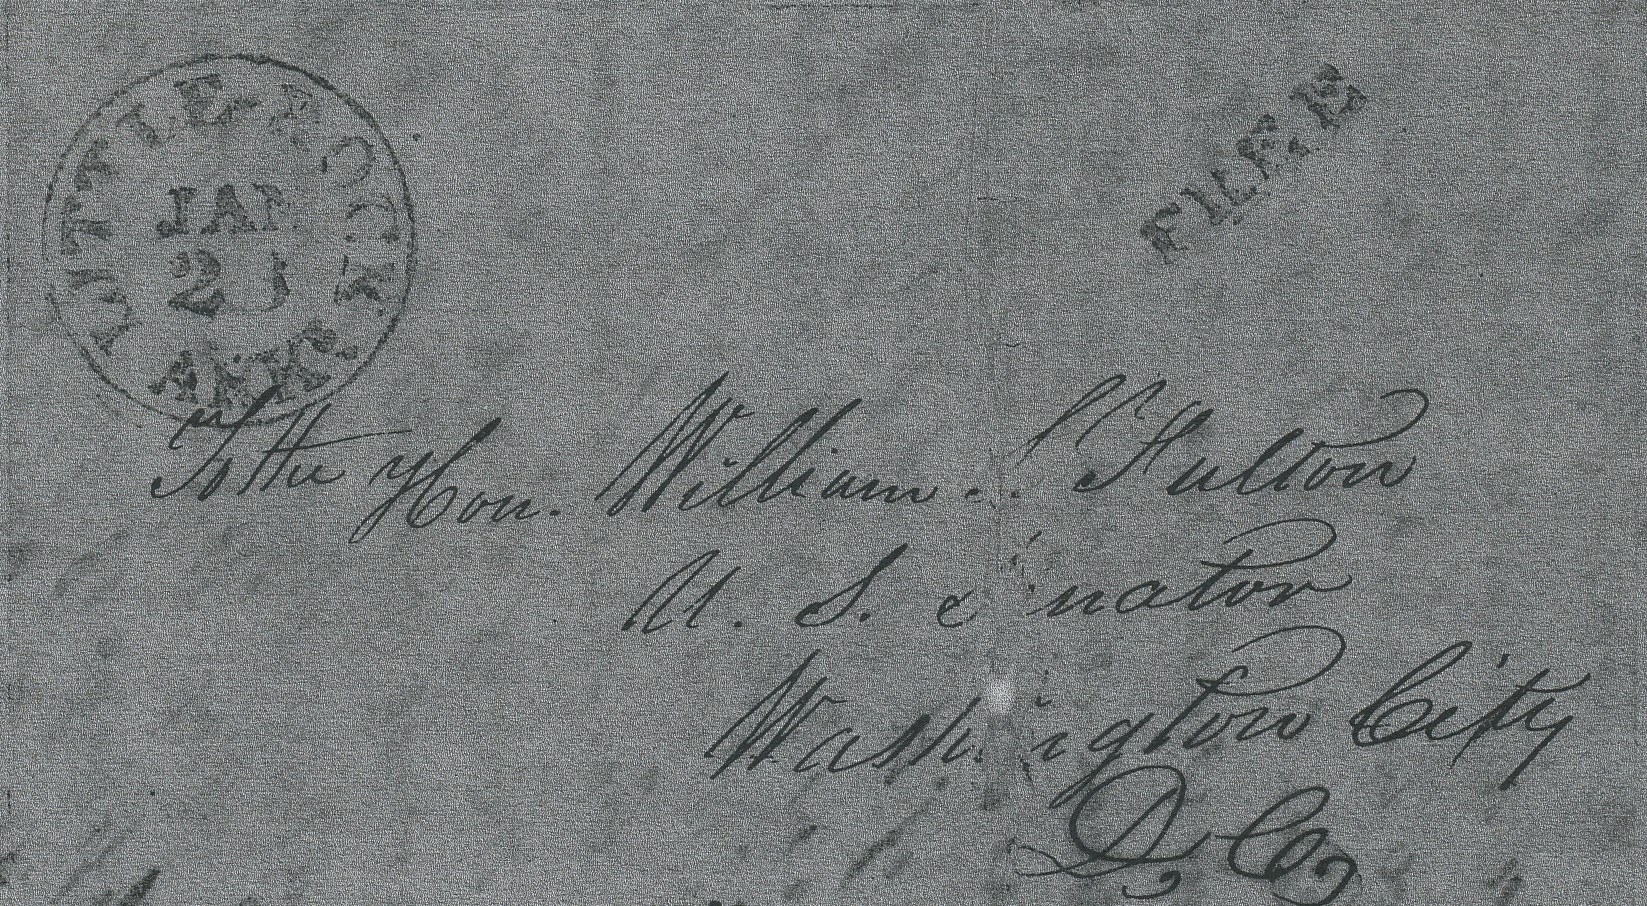 LITTLE-ROCK
JAN
ARK.
FREE
To the Hon. William S. Fulton
U. S. Senator
Washington City
D. C.